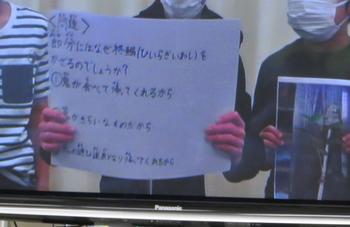 〈問題〉
節分にはなぜ柊鰯(ひいらぎいわし)を
かざるのでしょうか?
①鬼が食べて てくれるから
がきらいなものだから
てくれるから
Panasonic